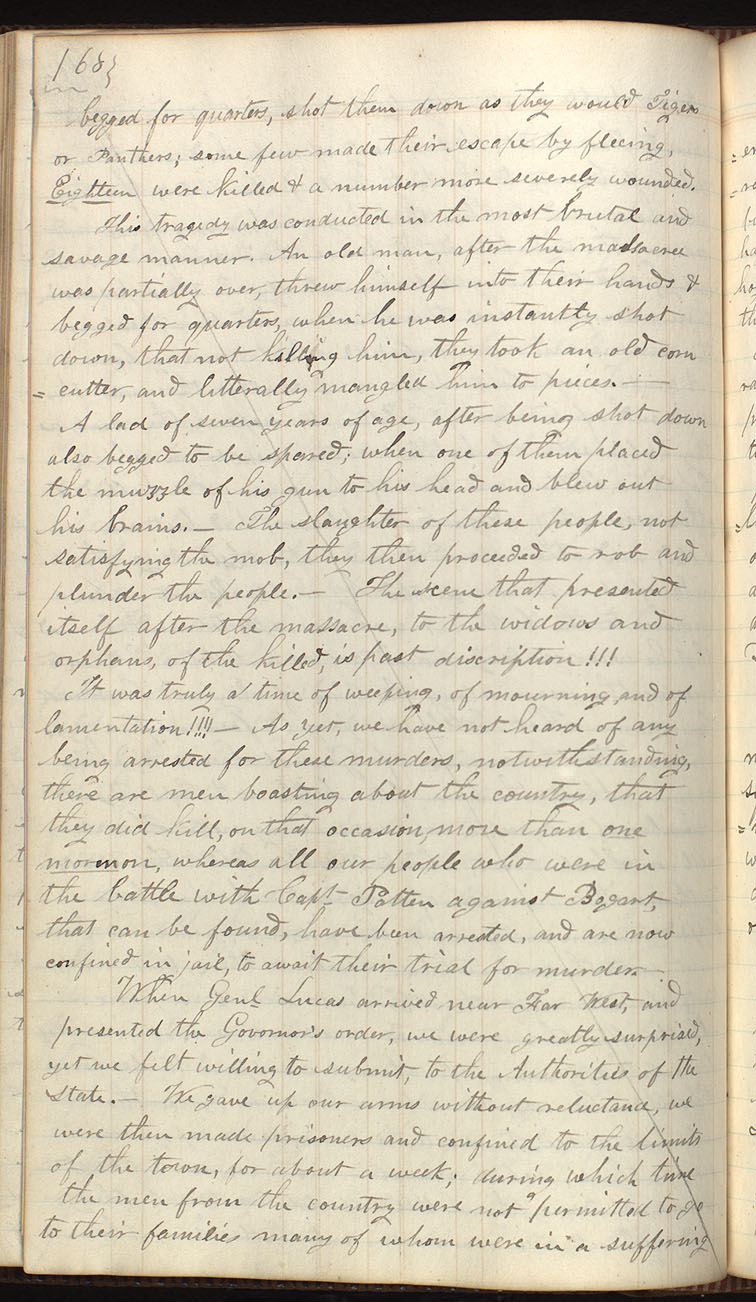 168}
begged for quarters, shot them down as they would Tigers
or Panthers; some few made their escape by fleeing,
Eighteen were killed & a number more severely wounded.
This tragedy was conducted in the most brutal and
savage manner. An old man, after the massacree
was partially over, threw himself into their hands &
begged for quarters, when he was instantly shot
down, that not killing him, they took an old corn
= cutter, and litterally mangled him to pieces. —
A lad of seven years of age, after being shot down
also begged to be spared; when one of them placed
the muzzle of his gun to his head and blew out
his brains. — The slaughter of these people, not
satisfying the mob, they then proceeded to rob and
plunder the people. — The scene that presented
itself after the massacre, to the widows and
orphans, of the killed, is past discription!!!
It was truly a time of weeping, of mourning, and of
lamentation!!!! — As yet, we have not heard of any
being arrested for these murders, notwithstanding,
there are men boasting about the country, that
they did kill, on that occasion, more than one
mormon, whereas all our people who were in
the battle with Capt Patten against Bogart,
that can be found, have been arrested, and are now
confined in jail, to await their trial for murder. —
When Genl. Lucas arrived near Far West, and
presented the Govornor's order, we were greatly surprised,
yet we felt willing to submit, to the Authorities of the
State. — We gave up our arms without reluctance, we
were then made prisoners and confined to the limits
of the town, for about a week; during which time
the men from the country were not permitted to go
to their families many of whom were in a suffering